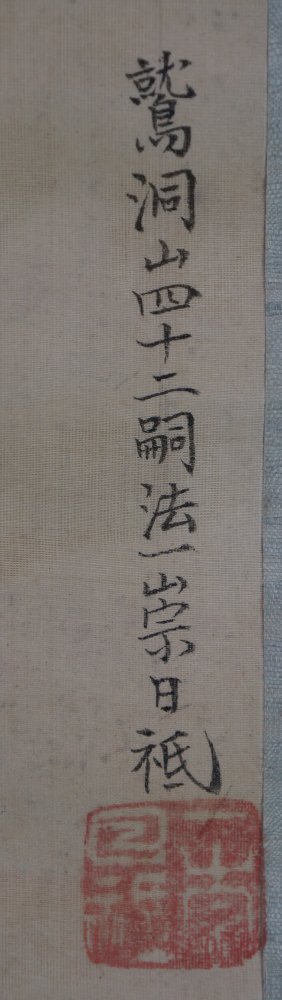 鷲洞山四十二嗣法一山宗日祗